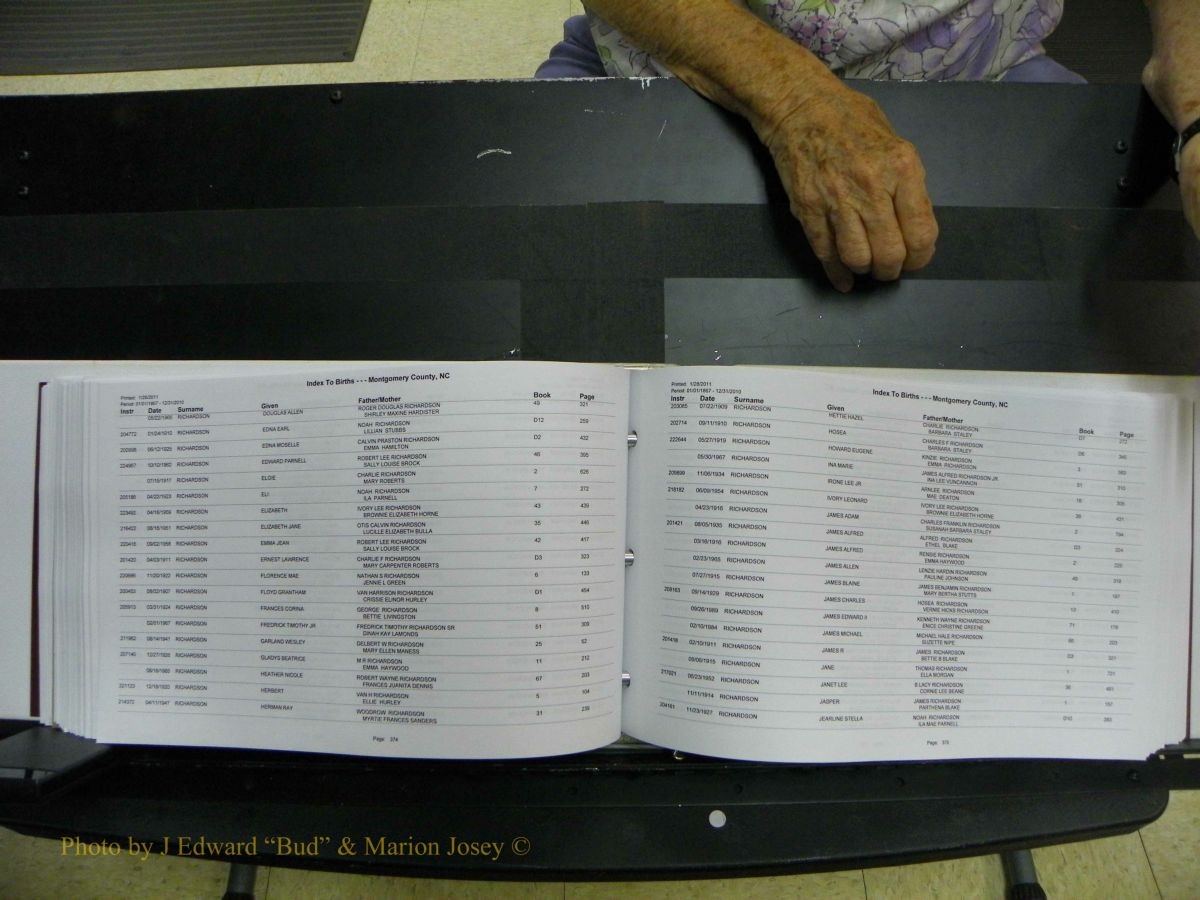 Index To Births - - - Montgomery County, NC
Printed: 1/28/2011
Period: 01/01/1867 - 12/31/2010
Instr Date Surname Given Father/Mother Book Page
RICHARDSON DOUGLAS ALLEN ROGER DOUGLAS RICHARDSON 49 321
SHIRLEY MAXINE HARDISTER
204772 01/24/1910 RICHARDSON EDNA EARL NOAH RICHARDSON D12 259
LILLIAN STUBBS
RICHARDSON EDNA MOSELLE CALVIN PRASTON RICHARDSON D2 432
EMMA HAMILTON
RICHARDSON EDWARD PARNELL ROBERT LEE RICHARDSON 46 395
SALLY LOUISE BROCK
07/15/1911 RICHARDSON ELGIE CHARLIE RICHARDSON 2 626
MARY ROBERTS
04/22/1923 RICHARDSON ELI NOAH RICHARDSON 7 272
ILA PARNELL
RICHARDSON ELIZABETH IVORY LEE RICHARDSON 43 439
BROWNIE ELIZABETH HORNE
RICHARDSON ELIZABETH JANE OTIS CALVIN RICHARDSON 35 446
LUCILLE ELIZABETH BULLA
RICHARDSON EMMA JEAN ROBERT LEE RICHARDSON 42 417
SALLY LOUISE BROCK
201420 04/03/1911 RICHARDSON ERNEST LAWRENCE CHARLIE F RICHARDSON D3 323
MARY CARPENTER ROBERTS
11/20/1922 RICHARDSON FLORENCE MAE NATHAN S RICHARDSON 6 133
JENNIE L GREEN
RICHARDSON FLOYD GRANTHAM VAN HARRISON RICHARDSON D1 454
CRISSIE ELINOR HURLEY
03/31/1924 RICHARDSON FRANCES CORINA GEORGE RICHARDSON 8 510
BETTIE LIVINGSTON
02/01/1967 RICHARDSON FREDRICK TIMOTHY JR FREDRICK TIMOTHY RICHARDSON SR 51 309
DINAH KAY LAMONDS
211962 08/14/1941 RICHARDSON GARLAND WESLEY DELBERT W RICHARDSON 25 52
MARY ELLEN MANESS
207140 12/27/1926 RICHARDSON GLADYS BEATRICE M R RICHARDSON 11 212
EMMA HAYWOOD
RICHARDSON HEATHER NICOLE ROBERT WAYNE RICHARDSON 67 203
FRANCES JUANITA DENNIS
221123 RICHARDSON HERBERT VAN H RICHARDSON 5 104
ELLIE HURLEY
214372 04/11/1947 RICHARDSON HERMAN RAY WOODROW RICHARDSON 31 239
MYRTIE FRANCES SANDERS
Page: 374
Index To Births - - - Montgomery County, NC
Printed: 1/28/2011
Period: 01/01/1867 - 12/31/2010
Instr Date Surname Given Father/Mother Book Page
203065 07/22/1909 RICHARDSON HETTIE HAZEL CHARLIE RICHARDSON D1
BARBARA STALEY
202714 09/11/1910 RICHARDSON HOSEA CHARLES F RICHARDSON
BARBARA STALEY
222644 05/27/1919 RICHARDSON HOWARD EUGENE KINZIE RICHARDSON
EMMA RICHARDSON
05/30/1967 RICHARDSON INA MARIE JAMES ALFRED RICHARDSON JR 51 310
INA LEE VUNCANNON
209899 11/06/1934 RICHARDSON IRONE LEE JR ARNLEE RICHARDSON
MAE DEATON
218182 06/09/1954 RICHARDSON IVORY LEONARD IVORY LEE RICHARDSON 431
BROWNIE ELIZABETH HORNE
04/23/1916 RICHARDSON JAMES ADAM CHARLES FRANKLIN RICHARDSON
SUSANAH BARBARA STALEY
201421 08/05/1905 RICHARDSON JAMES ALFRED ALFRED RICHARDSON D3 224
ETHEL BLAKE
03/16/1916 RICHARDSON JAMES ALFRED RENSIE RICHARDSON 2
EMMA HAYWOOD
02/23/1965 RICHARDSON JAMES ALLEN LENZIE HARDIN RICHARDSON 319
PAULINE JOHNSON
07/27/1915 RICHARDSON JAMES BLAINE JAMES BENJAMIN RICHARDSON
MARY BERTHA STUTTS
208163 09/14/1929 RICHARDSON JAMES CHARLES HOSEA RICHARDSON 410
VERNIE HICKS RICHARDSON
09/26/1989 RICHARDSON JAMES EDWARD II KENNETH WAYNE RICHARDSON 71
ENICE CHRISTINE GREENE
02/10/1984 RICHARDSON JAMES MICHAEL MICHAEL HALE RICHARDSON
SUZETTE NIPE
02/10/1911 RICHARDSON JAMES R JAMES RICHARDSON D3 321
BETTIE B BLAKE
09/06/1915 RICHARDSON JANE THOMAS RICHARDSON 1 721
ELLA MORGAN
217021 06/23/1952 RICHARDSON JANET LEE B LACY RICHARDSON 36
CORNIE LEE BEANE
11/11/1914 RICHARDSON JASPER JAMES RICHARDSON 1
PARTHENA BLAKE
204161 11/23/1927 RICHARDSON JEARLINE STELLA NOAH RICHARDSON D10 383
ILA MAE PARNELL
Page: 375
Photo by J Edward “Bud” & Marion Josey ©